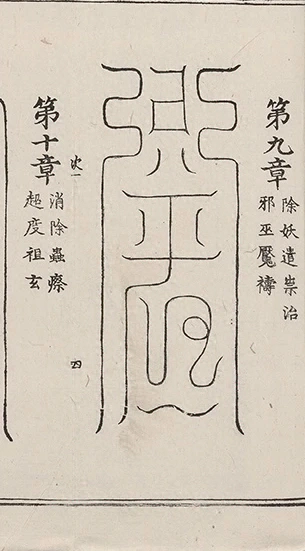 第九章
除妖遣祟治
邪巫魘禱
次一
四
第十章
消除蟲瘵
超度祖玄